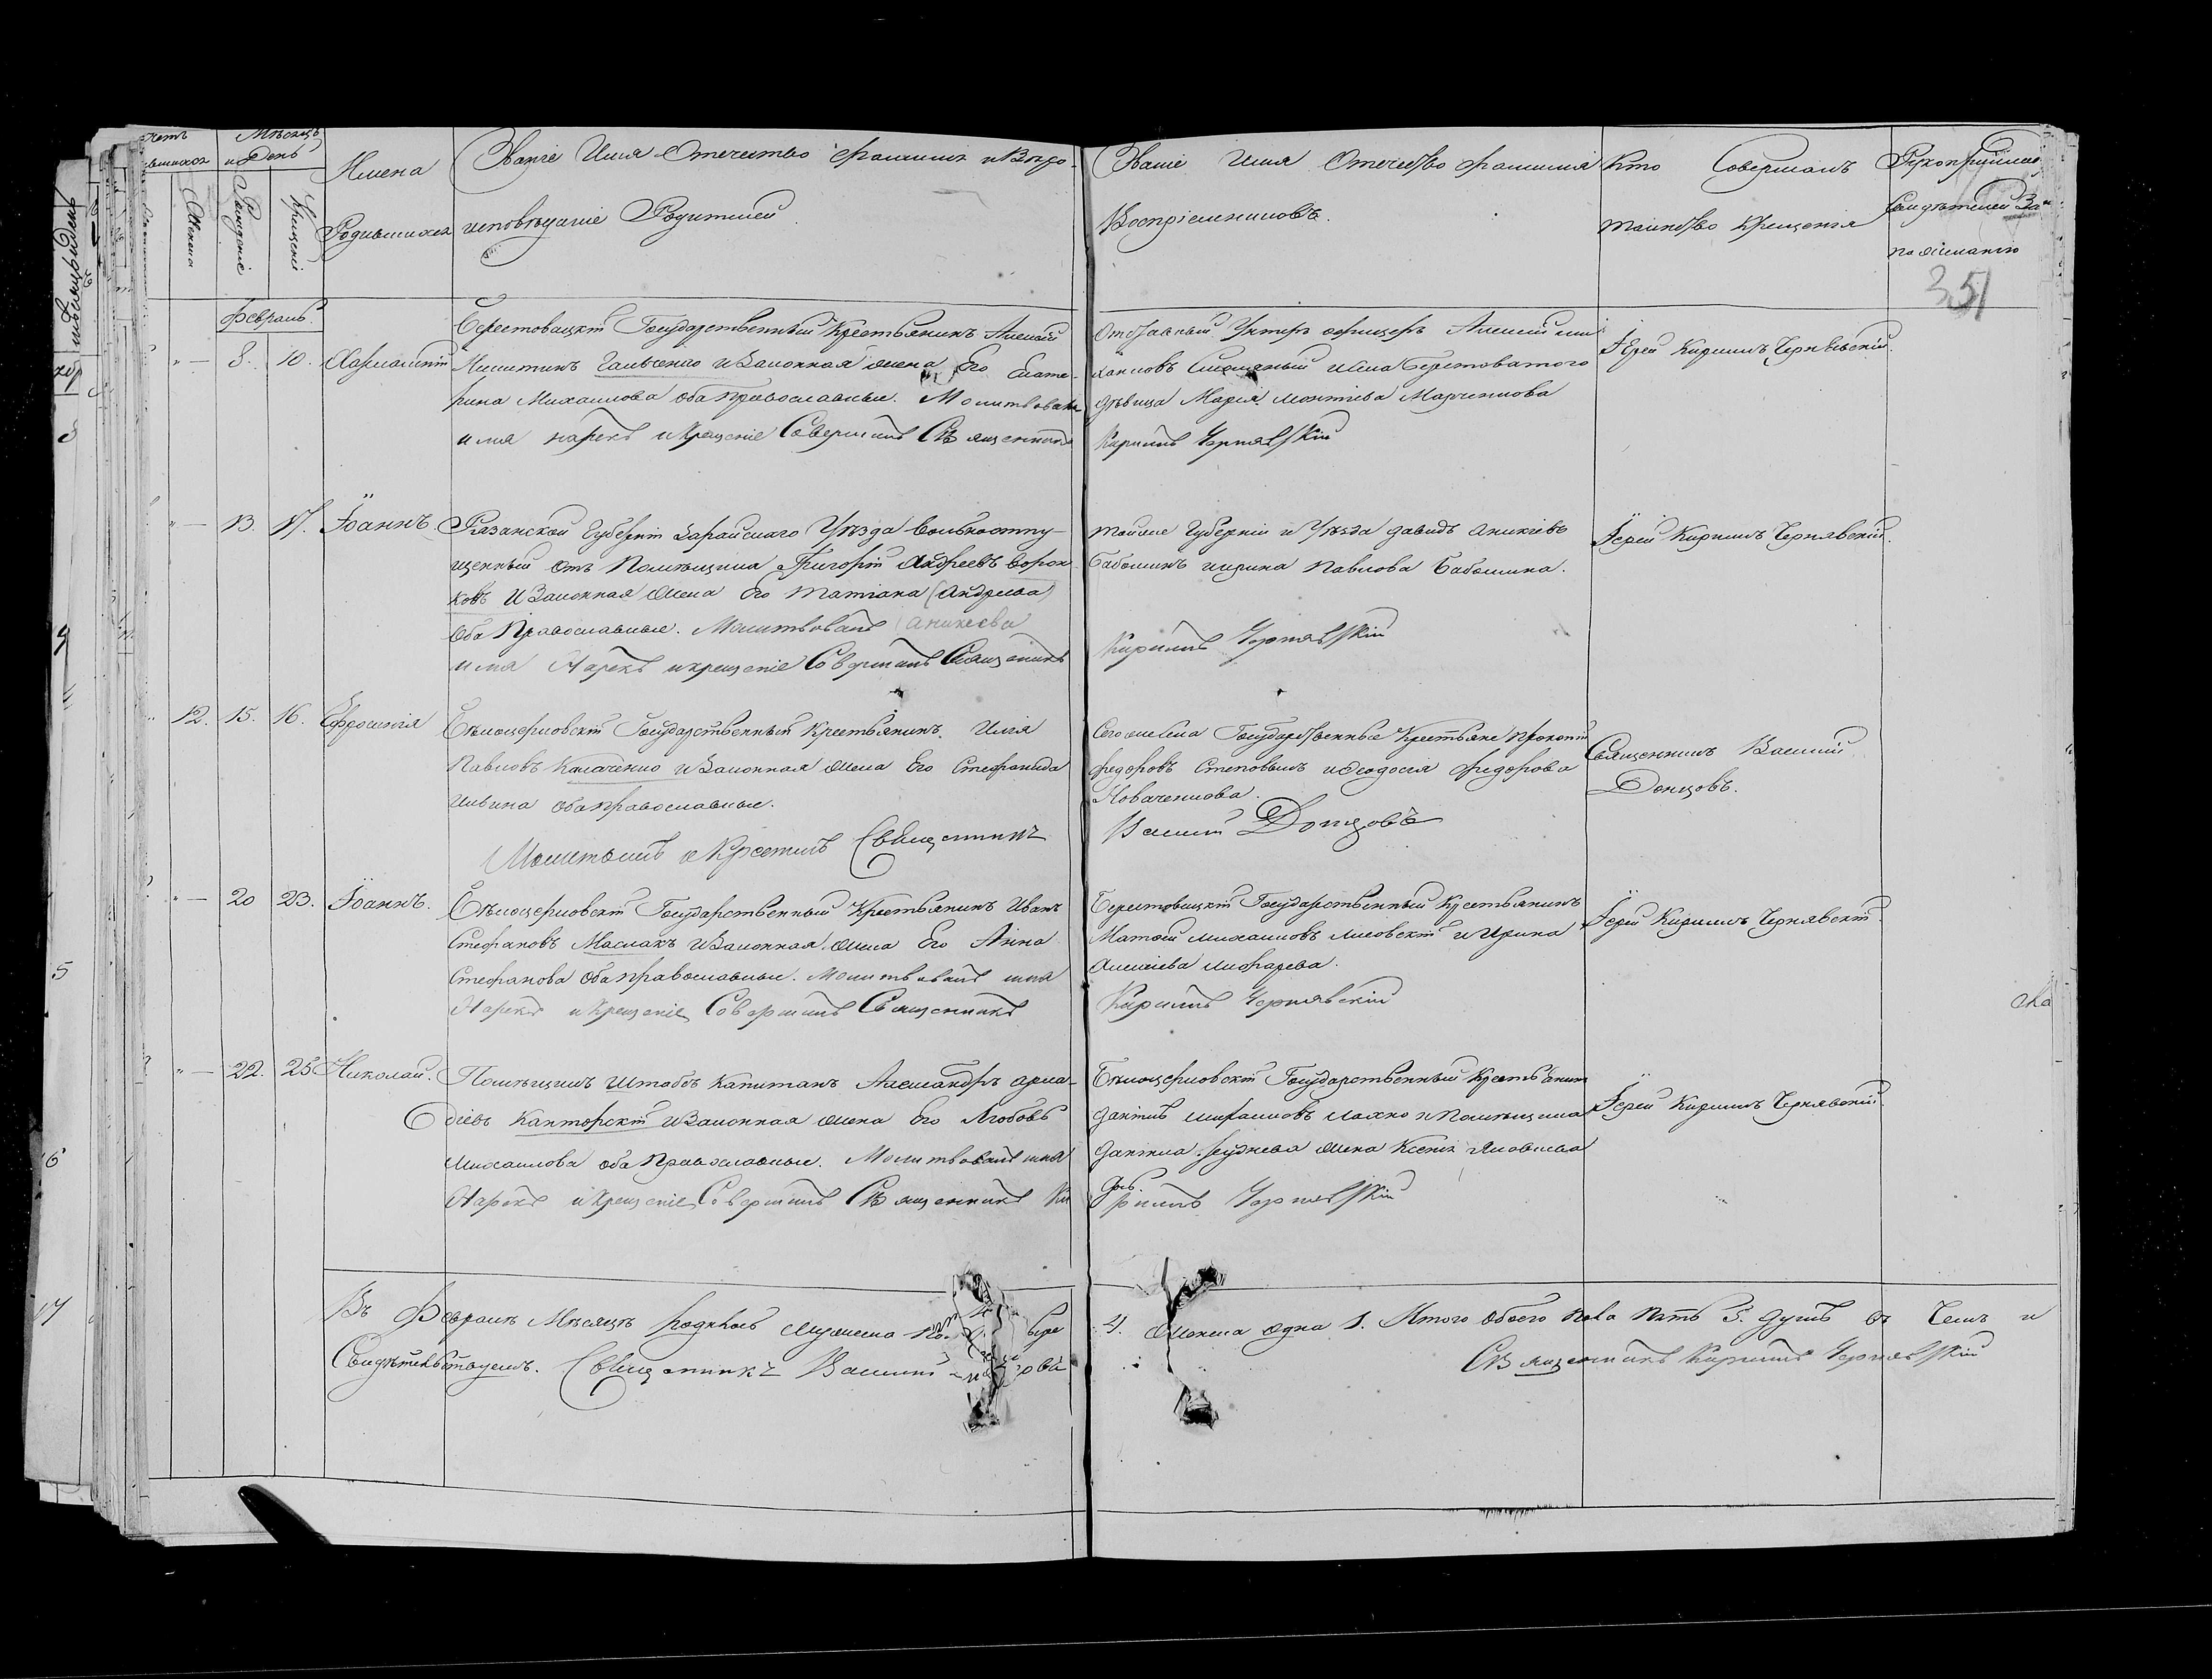 Мѣсяцъ
и День
Имена
Родившихся
Рожденіе
Крещенія
Званіе Имя Отечество Фамилія и Вѣро-
исповѣданіе Родителей
Званіе Имя Отечество Фамилія
Воспріемниковъ.
Кто Совершалъ
таинство Крещенія
Свидѣтелей За-
по желанію
351
Февраль.
8. 10. Харлампій
Берестовацкій Государственный Крестьянинъ Алексѣй
Никитинъ Гальченко и Законная жена Его Екате-
рина Михаилова оба православные. Молитвовалъ
имя нарекъ и Крещеніе Совершилъ Священникъ
Отставный Унтеръ офицеръ Алексѣй ми-
хаиловъ и села Берестоватого
дѣвица Марія Марченкова
Кирилъ Чернявскій
Іерей Кирилъ Чернявскій.
13. 17. Іоаннъ.
Рязанской Губерніи Зарайскаго Уѣзда Вольноотпу-
щенный отъ Помѣщика Григорій Андреевъ Ворон
ковъ и Законная жена Его Татіана (Андреева)
Оба Православные. Молитвовалъ (Аникеева
имя Нарекъ и крещеніе Совершилъ Священникъ
тойже Губерніи и Уѣзда давидъ Аникіевъ
Бабошинъ и ирина Павлова Бабошина.
Кирилъ Чернявскій
Іерей Кирилъ Чернявскій.
12. 15. 16. Ефросинія
Бѣлоцерковскій Государственный Крестьянинъ Илія
Павловъ Калаченко и Законная жена Его Стефанида
Ильина оба православные.
Молитвилъ и Крестилъ Священникъ
Сего жъ села Государственные Крестьяне Прокопій
федоровъ Степовыкъ и Феодосія Федорова
Новаченкова.
Василій Донцовъ
Священникъ Василій
Донцовъ.
20 23. Іоаннъ.
Бѣлоцерковскій Государственный Крестьянинъ Иванъ
Стефановъ Маслакъ и Законная жена Его Анна
Стефанова оба православные. Молитвовалъ имя
Нарекъ и Крещеніе Совершилъ Священникъ
Берестовацкій Государственный Крестьянинъ
Матѳей михаиловъ лисовскій и Ирина
Алексіева
Кирилъ Чернявскій
Іерей Кирилъ Чернявскій.
22. 25 Николай.
Помѣщикъ Штабсъ Капитанъ Александръ арка-
діевъ Канторскій и Законная жена Его Любовь
Михаилова оба Православные. Молитвовалъ имя
Нарекъ и Крещеніе Совершилъ Священникъ Ки
Бѣлоцерковскій Государственный Крестьянинъ
даніилъ лахно и Помѣщика
Даніила жена Ксенія Яковлева
рилъ Чернявскій
Іерей Кирилъ Чернявскій.
Въ Февралѣ Мѣсяцѣ родилось мужеска
4. Женска одна 1. Итого Обоего пола пять 5. душъ въ Чемъ и
Свидѣтельствуемъ. Священникъ Василій
Священникъ Кирилъ Чернявскій